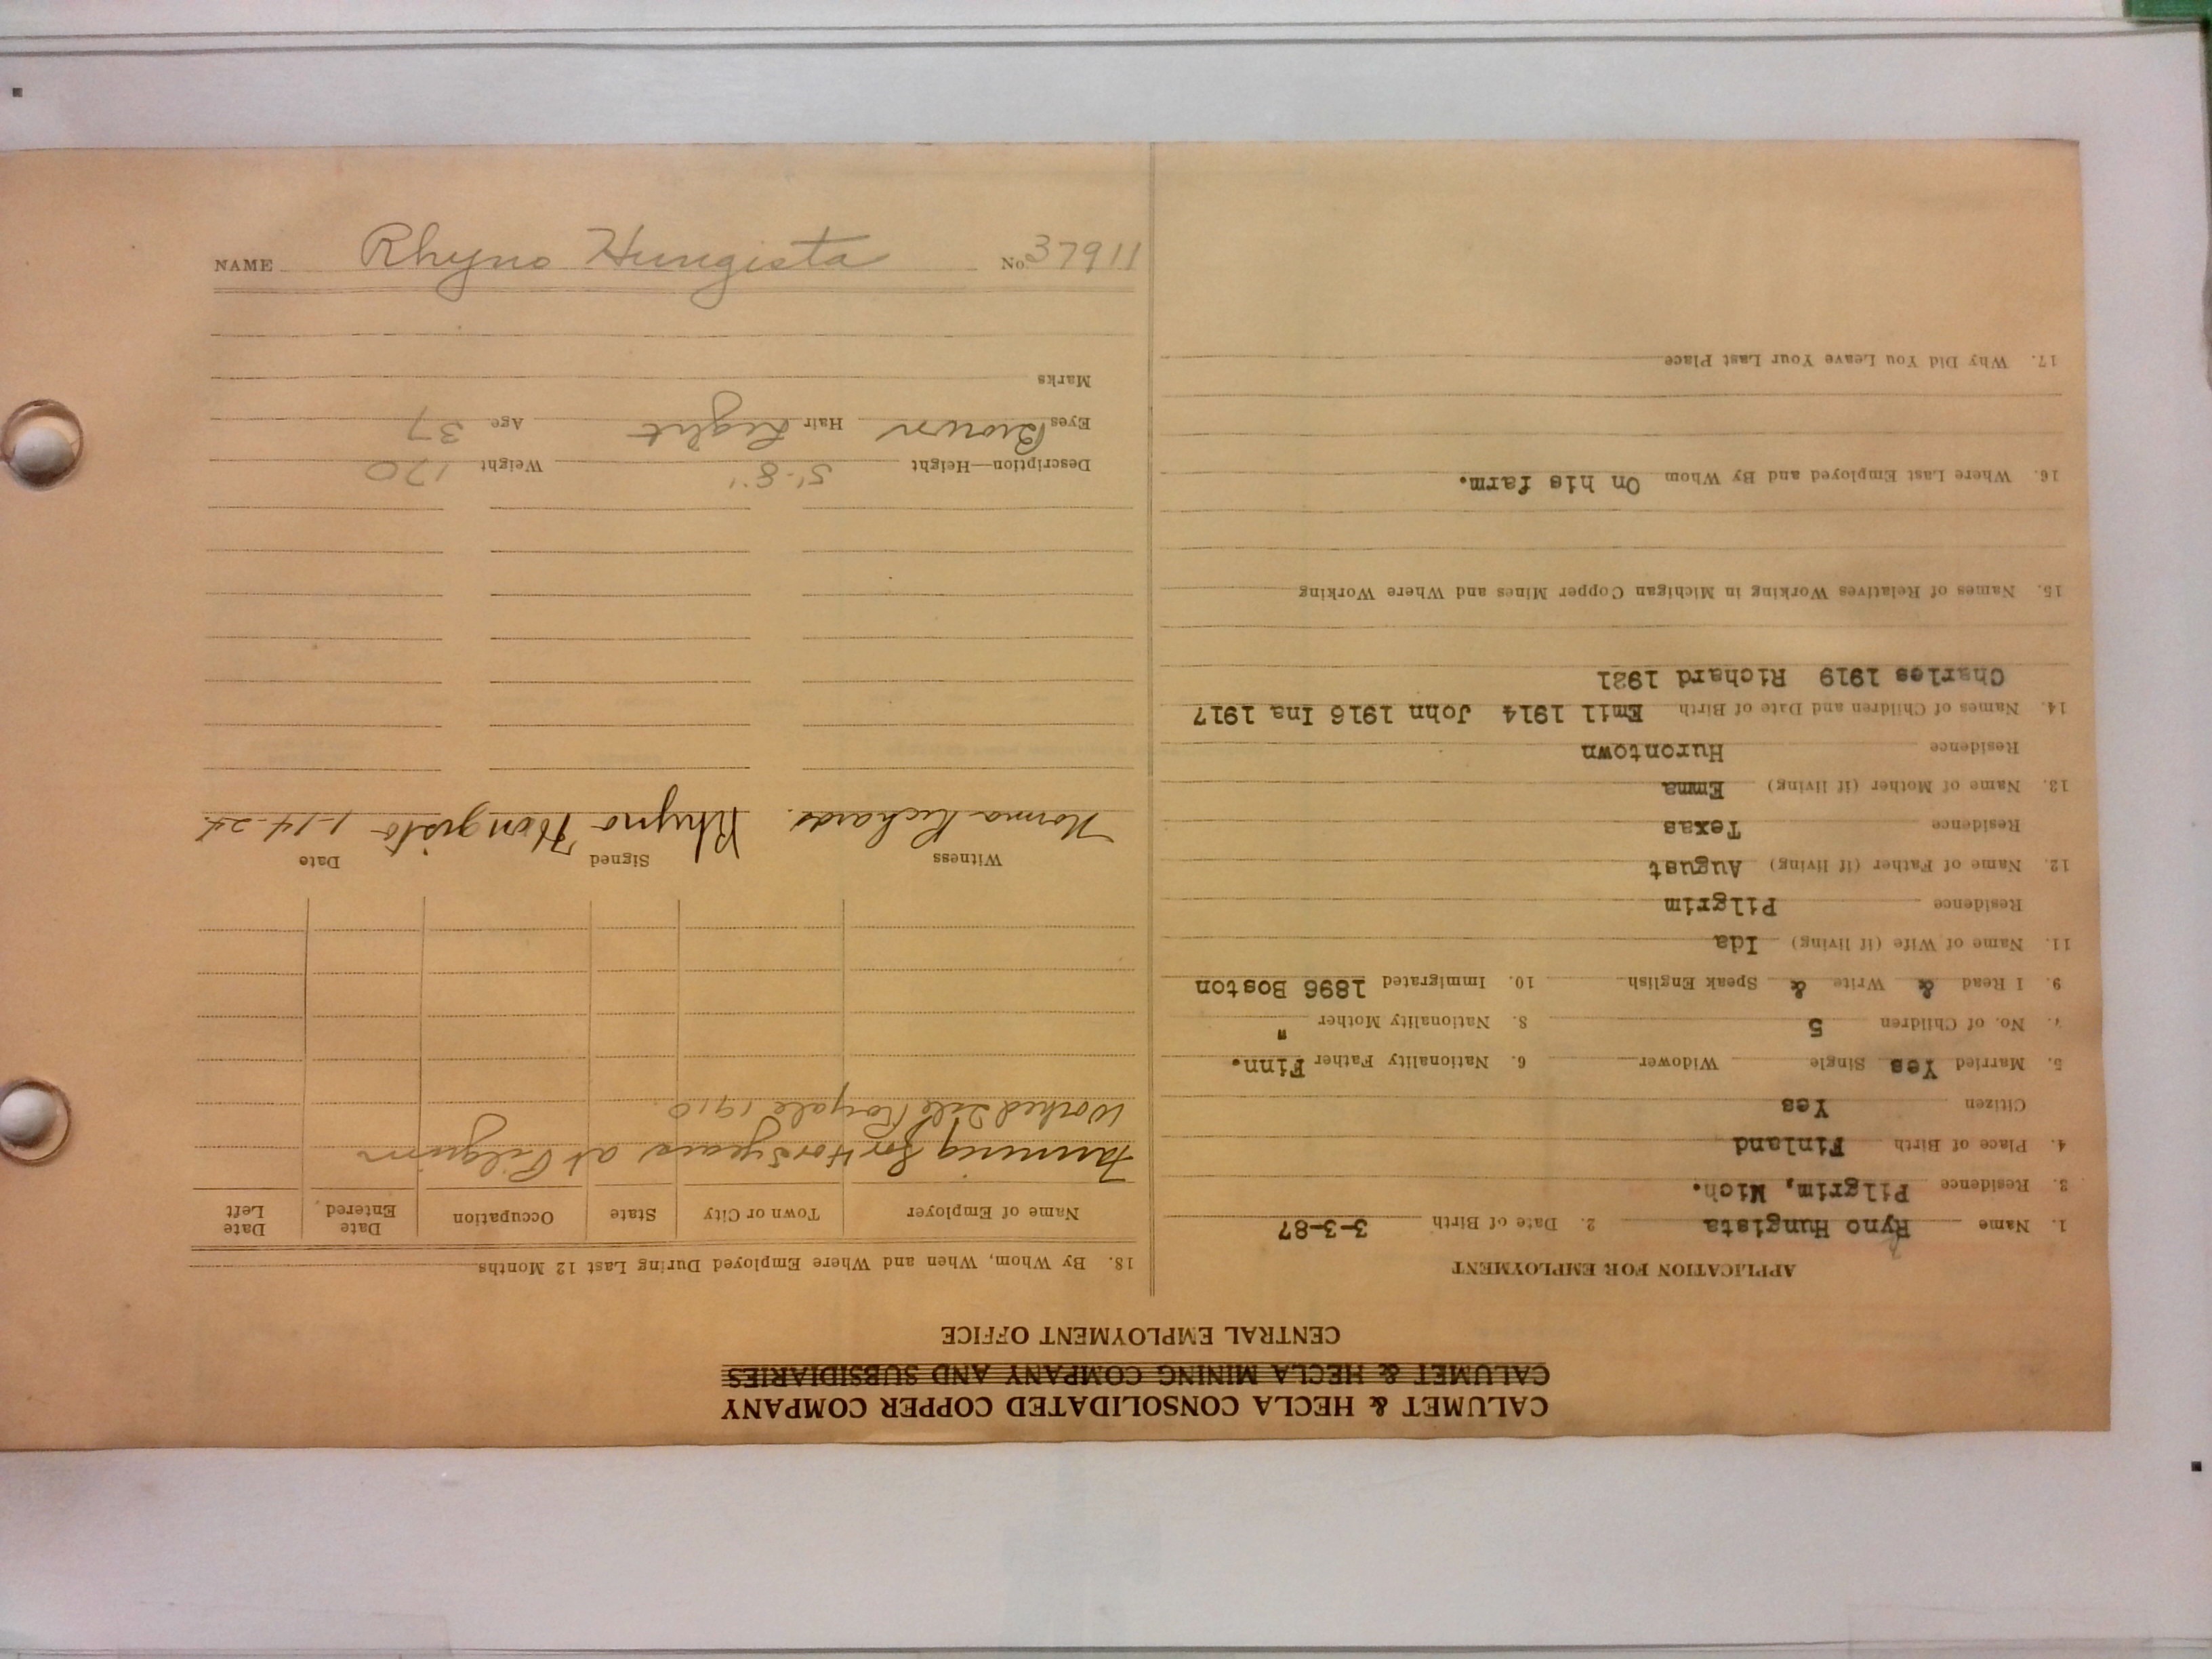 CALUMET & HECLA CONSOLIDATED COPPER COMPANY
CALUMET & HECLA MINING COMPANY AND SUBSIDIARIES
CENTRAL EMPLOYMENT OFFICE
APPLICATION FOR EMPLOYMENT
1. Name Ryno Hungista 2. Date of Birth 3-3-87
3. Residence Pilgrim, Mich.
4. Place of Birth Finland
Citizen Yes
5. Married Yes Single Widower 6. Nationality Father Finn.
7. No. of Children 5 8. Nationality Mother "
9. I Read & Write & Speak English 10. Immigrated 1896 Boston
11. Name of Wife (if living) Ida
Residence Pilgrim
12. Name of Father (if living) August
Residence Texas
13. Name of Mother (if living) Emma
Residence Hurontown
14. Names of Children and Date of Birth Emil 1914 John 1916 Ina 1917
Charles 1919 Richard 1921
15. Names of Relatives Working in Michigan Copper Mines and Where Working
16. Where Last Employed and By Whom On his farm.
17. Why Did You Leave Your Last Place
18. By Whom, When and Where Employed During Last 12 Months
Name of Employer Town or City State Occupation Date Entered Date Left
Farming for 4 or 5 years at Pilgrim
Worked Isle Royale 1910.
Witness Signed Date
Norma Richards. Rhyno Hongisto 1-14-24
Description—Height 5'-8" Weight 170
Eyes Brown Hair Light Age 37
Marks
NAME Rhyno Hungista No. 37911